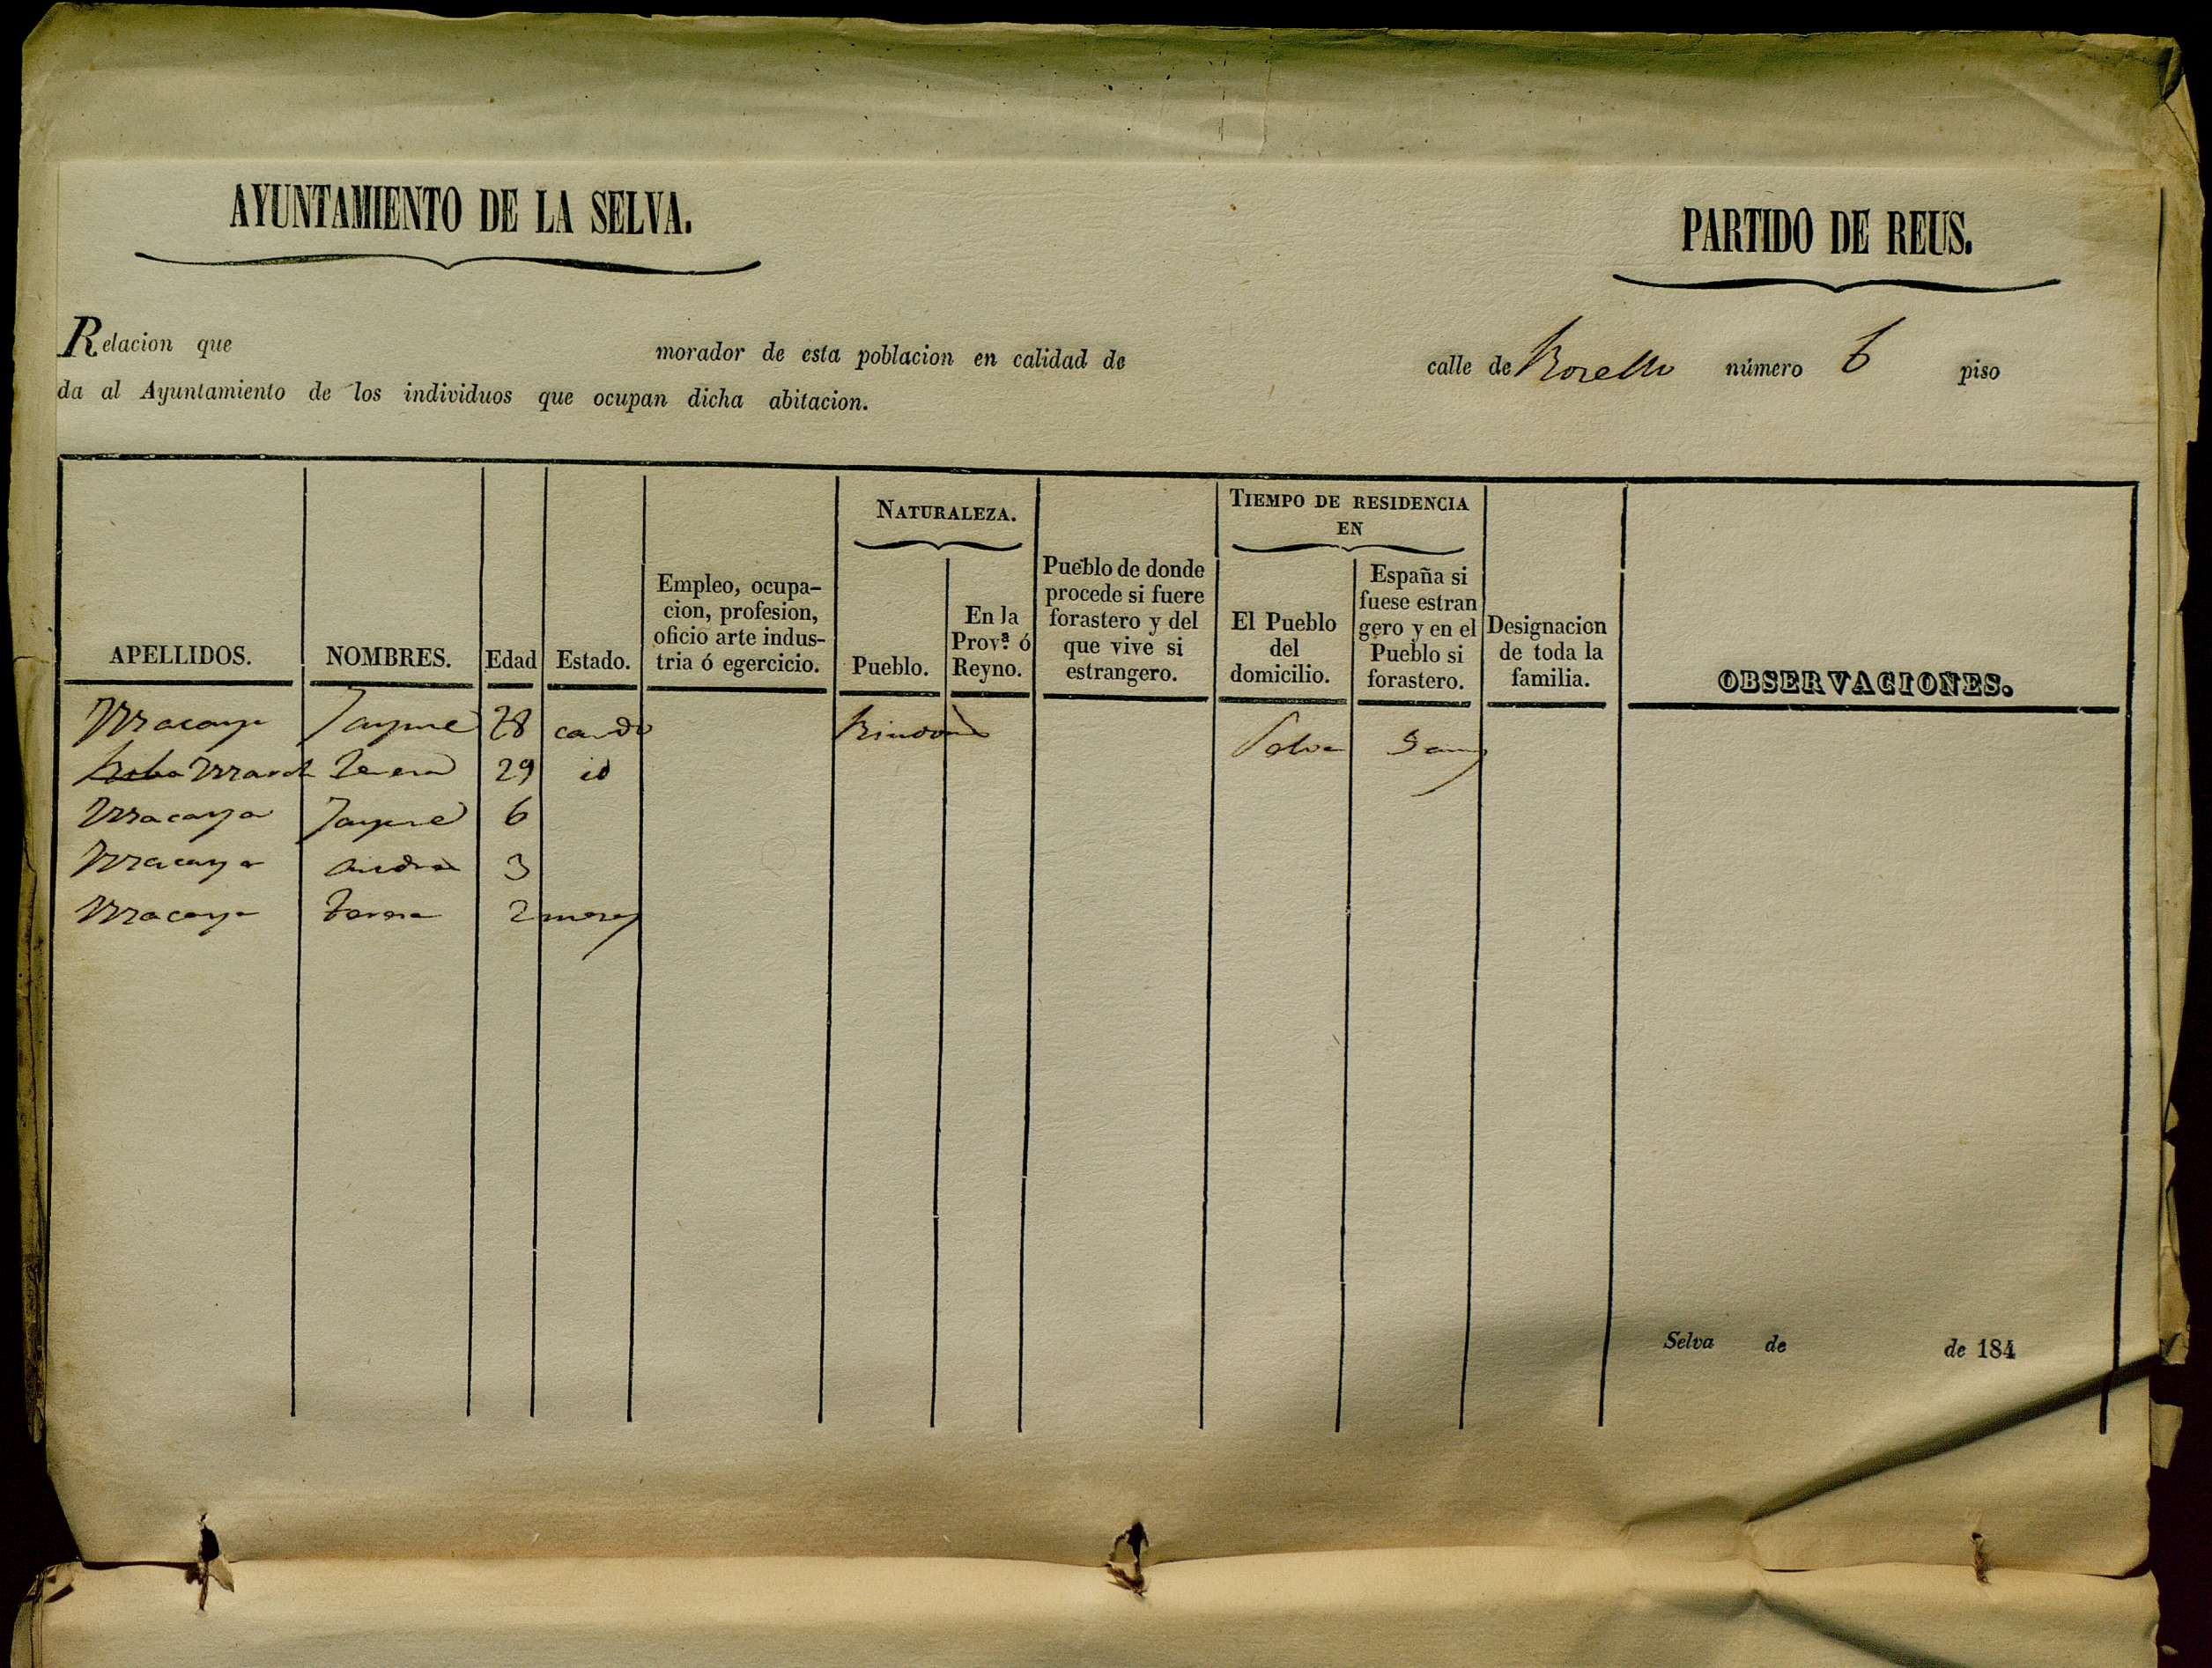 AYUNTAMIENTO DE LA SELVA.
PARTIDO DE REUS.
Relacion que morador de esta poblacion en calidad de calle de número 6 piso
da al Ayuntamiento de los individuos que ocupan dicha abitacion.
APELLIDOS.
NOMBRES.
Edad
Estado.
Empleo, ocupa-
cion, profesion,
oficio arte indus-
tria ó egercicio.
NATURALEZA.
Pueblo.
En la
Provª ó
Reyno.
Pueblo de donde
procede si fuere
forastero y del
que vive si
estrangero.
TIEMPO DE RESIDENCIA
EN
El Pueblo
del
domicilio.
España si
fuese estran
gero y en el
Pueblo si
forastero.
Designacion
de toda la
familia.
OBSERVACIONES.
Macaya Jayme 28 casado Selva
March Teresa 29 id
Macaya Jayme 6
Macaya 3
Macaya Teresa 2 meses
Selva de de 184